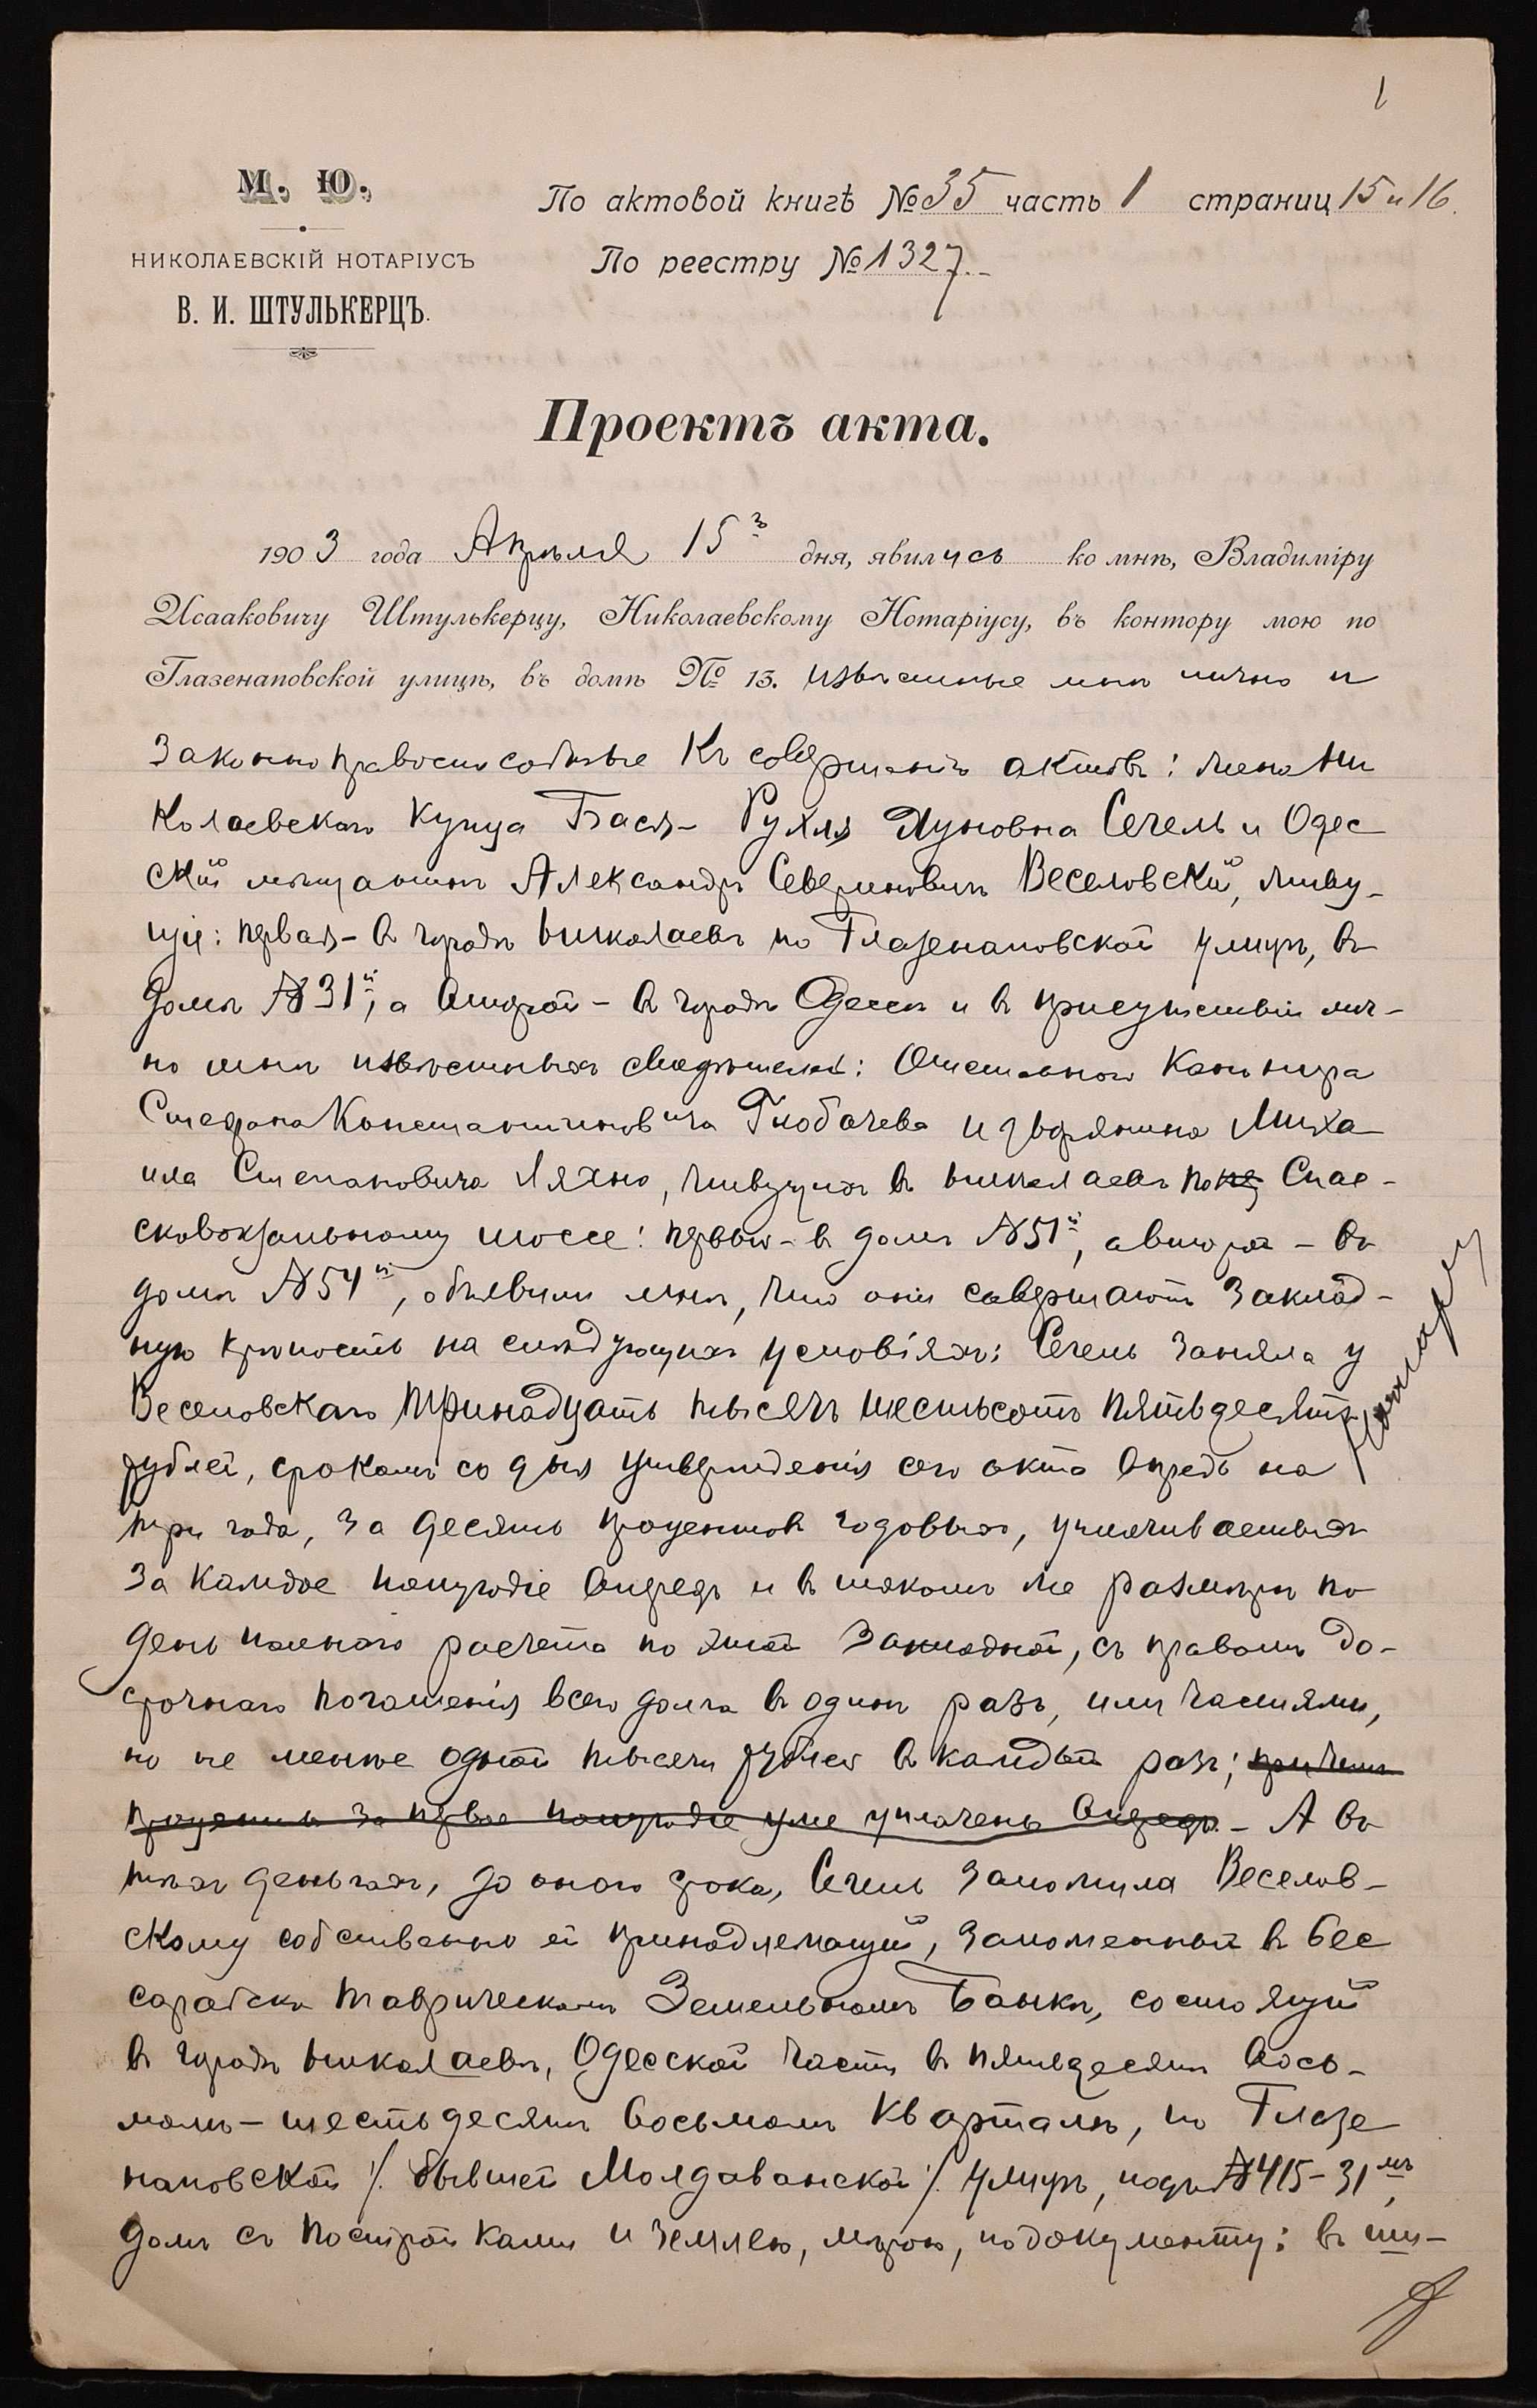 1
М. Ю.
НИКОЛАЕВСКІЙ НОТАРІУСЪ
В. И. ШТУЛЬКЕРЦЪ.
По актовой книгѣ № 35 часть 1 страниц 15 и 16.
По реестру № 1327.
Проектъ акта.
1903 года Апрѣля 15го дня, явились ко мнѣ, Владиміру
Исааковичу Штулькерцу, Николаевскому Нотаріусу, въ контору мою по
Глазенаповской улицѣ, въ домѣ № 13. извѣстные мнѣ лично и
законно правоспособные къ совершенію актовъ: жена Ни
колаевскаго купца Бася-Рухля Нуновна Сегель и Одес
скій мѣщанинъ Александръ Севериновичъ Веселовскій, живу-
щіе: первая - въ городѣ Николаевѣ по Глазенаповской улицѣ, въ
домѣ № 31й, а второй - въ городѣ Одессѣ и въ присутствіи лич-
но мнѣ извѣстныхъ свидѣтелей: Отставного
Стефана Константиновича Глобачева и дворянина Миха
ила Степановича Ляхно, живущихъ въ Николаевѣ по Спас-
сковокзальному шоссе: первый - въ домѣ № 51й, а второй - въ
домѣ № 54й, объявили мнѣ, что они совершаютъ заклад-
ную крѣпость на слѣдующихъ условіяхъ: Сегель заняла у
Веселовскаго тринадцать тысячъ шестьсотъ пятьдесятъ
рублей, срокомъ со дня утвержденія сего акта впредь на
три года, за десять процентовъ годовыхъ, уплачиваемыхъ
за каждое полугодіе впередъ и въ такомъ же размѣрѣ по
день полнаго расчета по этой закладной, съ правомъ до-
срочнаго погашенія всего долга въ одинъ разъ, или частями,
но не менѣе одной тысячи рублей въ каждый разъ; причемъ
проценты за первое полугодіе уже уплачены впередъ. - А въ
тѣхъ деньгахъ, до оного срока, Сегель заложила Веселов-
скому собственно ей принадлежащій, заложенный въ Бес
сарабско Таврическомъ Земельномъ Банкѣ, состоящій
въ городѣ Николаевѣ, Одесской части въ пятьдесятъ вось-
момъ - шестьдесятъ восьмомъ кварталѣ, по Глазе
наповской /. бывшей Молдаванской ./ улицѣ, подъ № 415-31мъ,
домъ съ постройками и землею, мѣрою, по документу: въ ши-